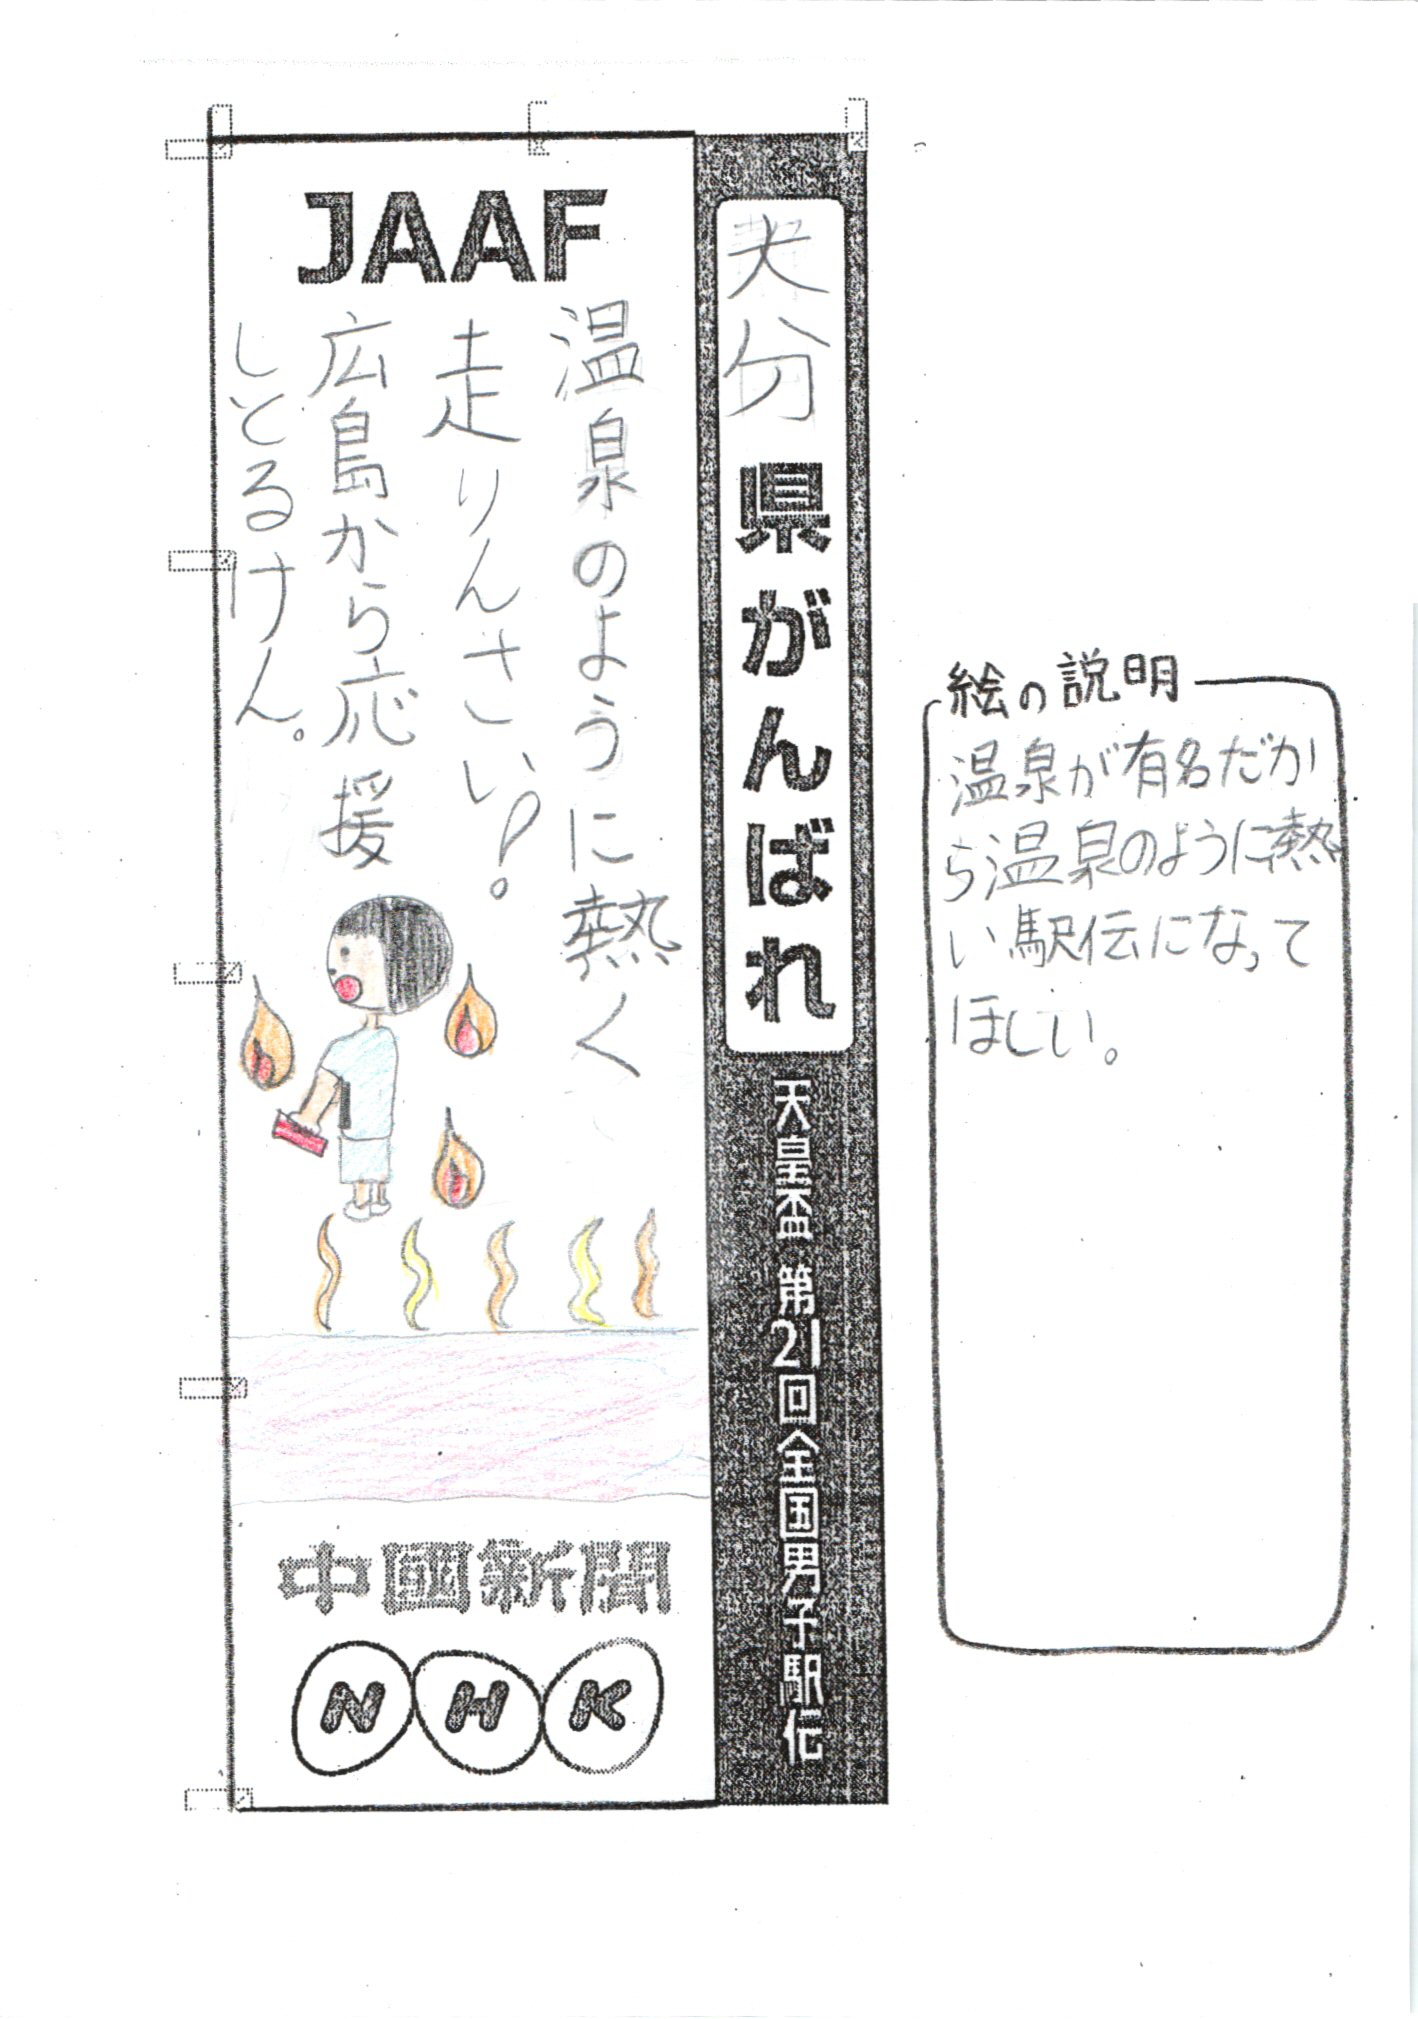 大分県がんばれ
天皇盃 第21回全国男子駅伝
JAAF
温泉のように熱く
走りんさい!
広島から応援
しとるけん。
中國新聞
NHK
絵の説明
温泉が有名だか
ら温泉のように熱
い駅伝になって
ほしい。